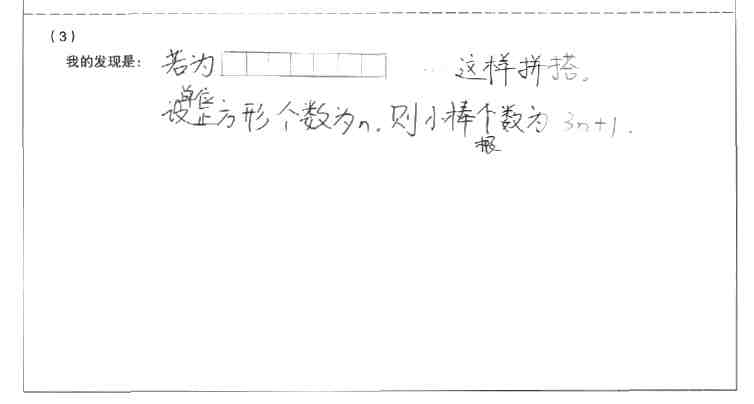 (3)
我的发现是: 若为 … 这样拼搭。
设单位正方形个数为n. 则小棒根数为 3n+1.